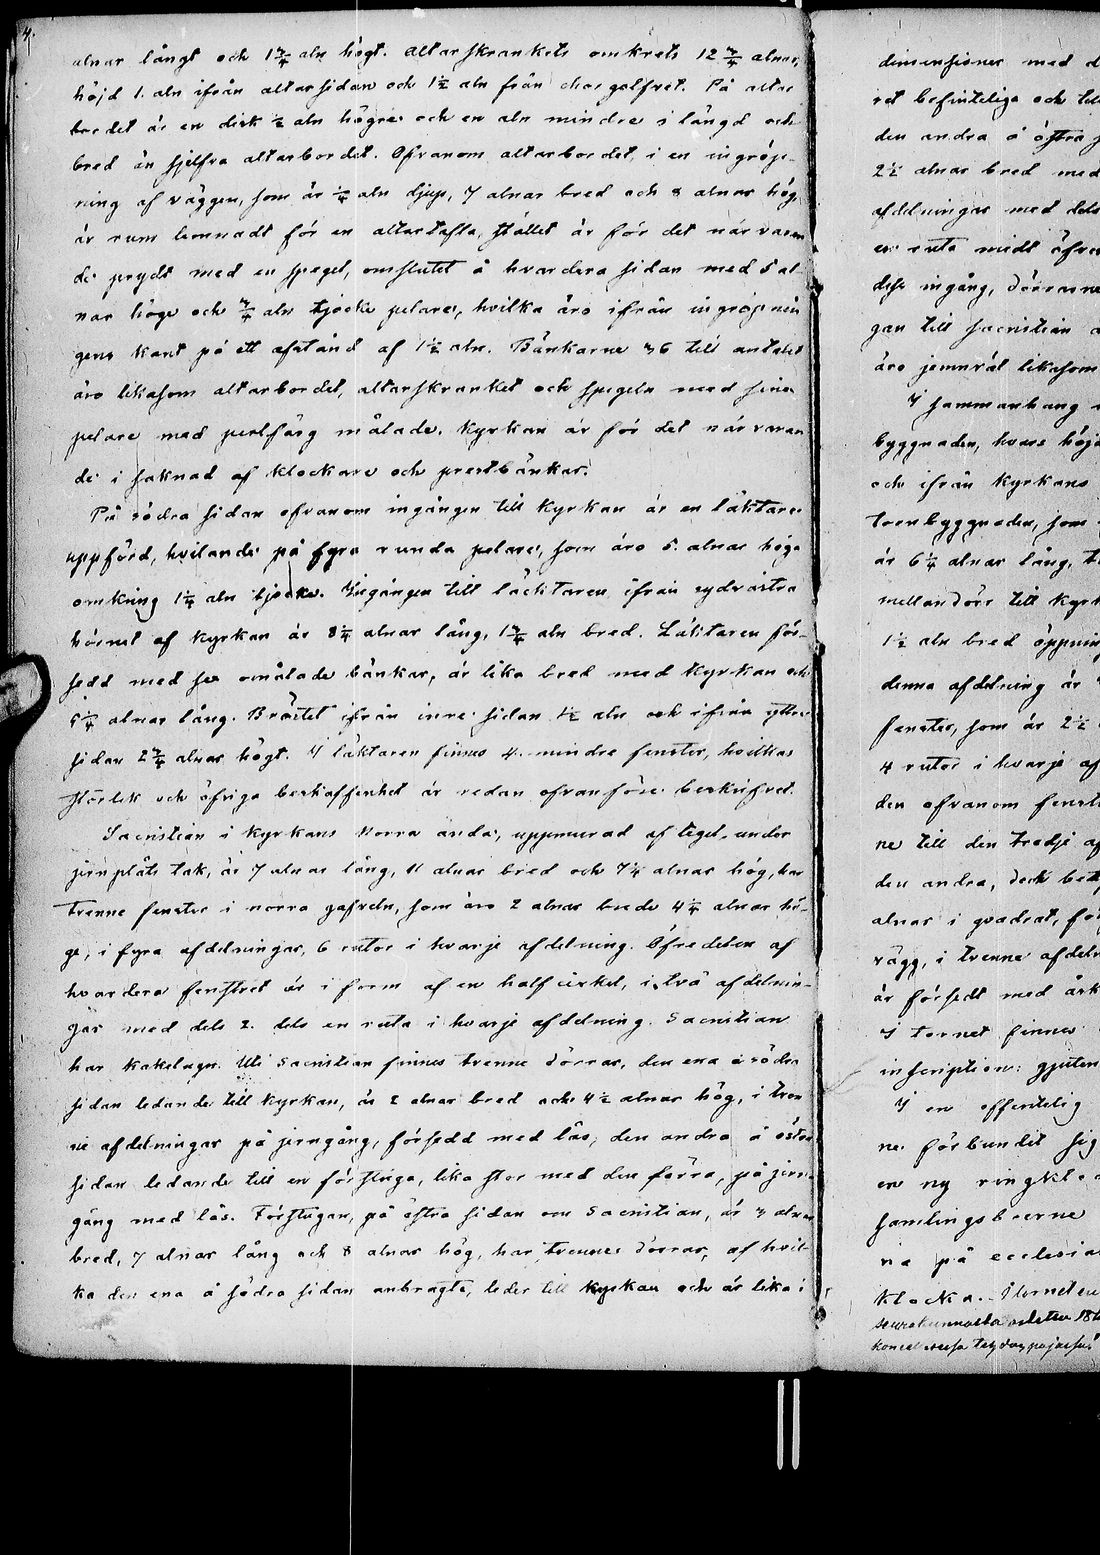 4.
alnar långt och 1 3/4 aln högt. Altarskrankets omkrets 12 3/4 alnar,
höjd 1. aln ifrån altarsidan och 1 1/2 aln från chorgolfvet. På altar
bordet är en disk 1/2 aln högre och en aln mindre i längd och
bred än sjelfva altarbordet. Ofvanom altarbordet, i en ingröp-
ning af väggen, som är 1/4 aln djup, 7 alnar bred och 8 alnar hög,
är rum lemnadt för en altartafla, stället är för det närvaran
de prydt med en spegel, omslutet å hvardera sidan med 5 al-
nar höge och 3/4 aln tjocke pelare, hvilka äro ifrån ingröpnin
gens kant på ett afstånd af 1 1/2 aln. Bänkarne 36 till antalet
äro likasom altarbordet, altarskranket och spegeln med sina
pelare med perlfärg målade. Kyrkan är för det närvaran
de i saknad af klockare och prestbänkar.
På södra sidan ofvanom ingången till Kyrkan är en läktare
uppförd, hvilande på fyra runda pelare, som äro 5. alnar höga
omkring 1 1/4 aln tjocke. Ingången till läcktaren ifrån sydvästra
hörnet af Kyrkan är 8 1/4 alnar lång, 1 3/4 aln bred. Läktaren för-
sedd med sex omålade bänkar, är lika bred med Kyrkan och
5 1/4 alnar lång. Bröstet ifrån inre sidan 1 1/2 aln och ifrån yttre
sidan 2 3/4 alnar högt. I läktaren finnes 4. mindre fenster, hvilkas
storlek och öfriga beskaffenhet är redan ofvanföre beskrifvet.
Sacristian i Kyrkans Norra ända, uppmurad af tegel, under
jernplåts tak, är 7 alnar lång, 11 alnar bred och 7 1/4 alnar hög, har
trenne fenster i norra gafveln, som äro 2 alnar breda 4 1/4 alnar hö-
ge, i fyra afdelningar, 6 rutor i hvarje afdelning. Öfre delen af
hvardera fenstret är i form af en halfcirkel, i två afdelnin-
gar med dels 2. dels en ruta i hvarje afdelning. Sacristian
har kakelugn. Uti Sacristian finnes trenne dörrar, den ena å södra
sidan ledande till Kyrkan, är 2 alnar bred och 4 1/2 alnar hög, i tven
ne afdelningar på jerngång, försedd med lås, den andra å östra
sidan ledande till en förstuga, lika stor med den förra, på jern
gång med lås. Förstugan, på östra sidan om Sacristian, är 3 alnar
bred, 7 alnar lång och 8 alnar hög, har trenne dörrar, af hvil-
ka den ena å södra sidan anbragte, leder till Kyrkan och är lika i
dimensioner med d
ret befinteliga och till
den andra å östra s
2 1/2 alnar bred med
afdelningar med dels
en ruta midt öfver
ingång, dörrarne
gan till Sacristian
äro jemväl likasom
I sammanhang
byggnaden, hvars höjd
och ifrån Kyrkans
tornbyggnaden, som
är 6 1/4 alnar lång,
mellandörr till Kyrk
1 1/2 aln bred öppnin
denna afdelning är
fenster, som är 2 1/2
4 rutor i hvarje af
den ofvanom fenst
ne till den tredje af
den andra, dock
alnar i qvadrat, för
vägg, i trenne afdeln
är försedt med
I tornet finnes
inscription: gjuten
I en offentelig
ne förbundit sig
en ny ringklo
samlingsböcerne
na på ecclesia
klocka.